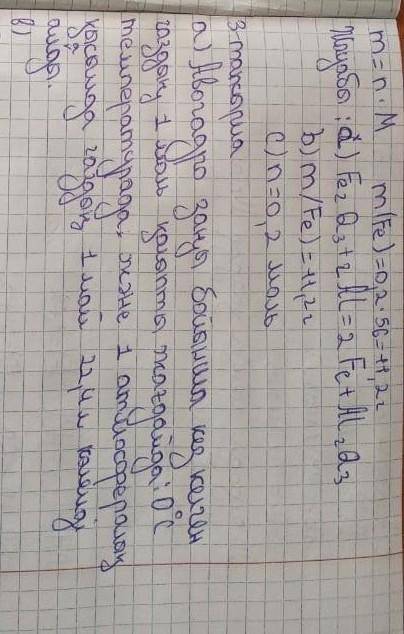 m = n · M m(Fe) = 0,2 · 56 = 11,2г
Жауабы: a) Fe₂O₃ + 2Al = 2Fe + Al₂O₃
b) m(Fe) = 11,2г
c) n = 0,2 моль
3-тапсырма
а) Авогадро заңы бойынша кез келген
газдың 1 моль қалыпты жағдайда: 0°С
температурада, және 1 атмосфералық
қысымда газдың 1 моль 22,4л көлемді
алады.
в)